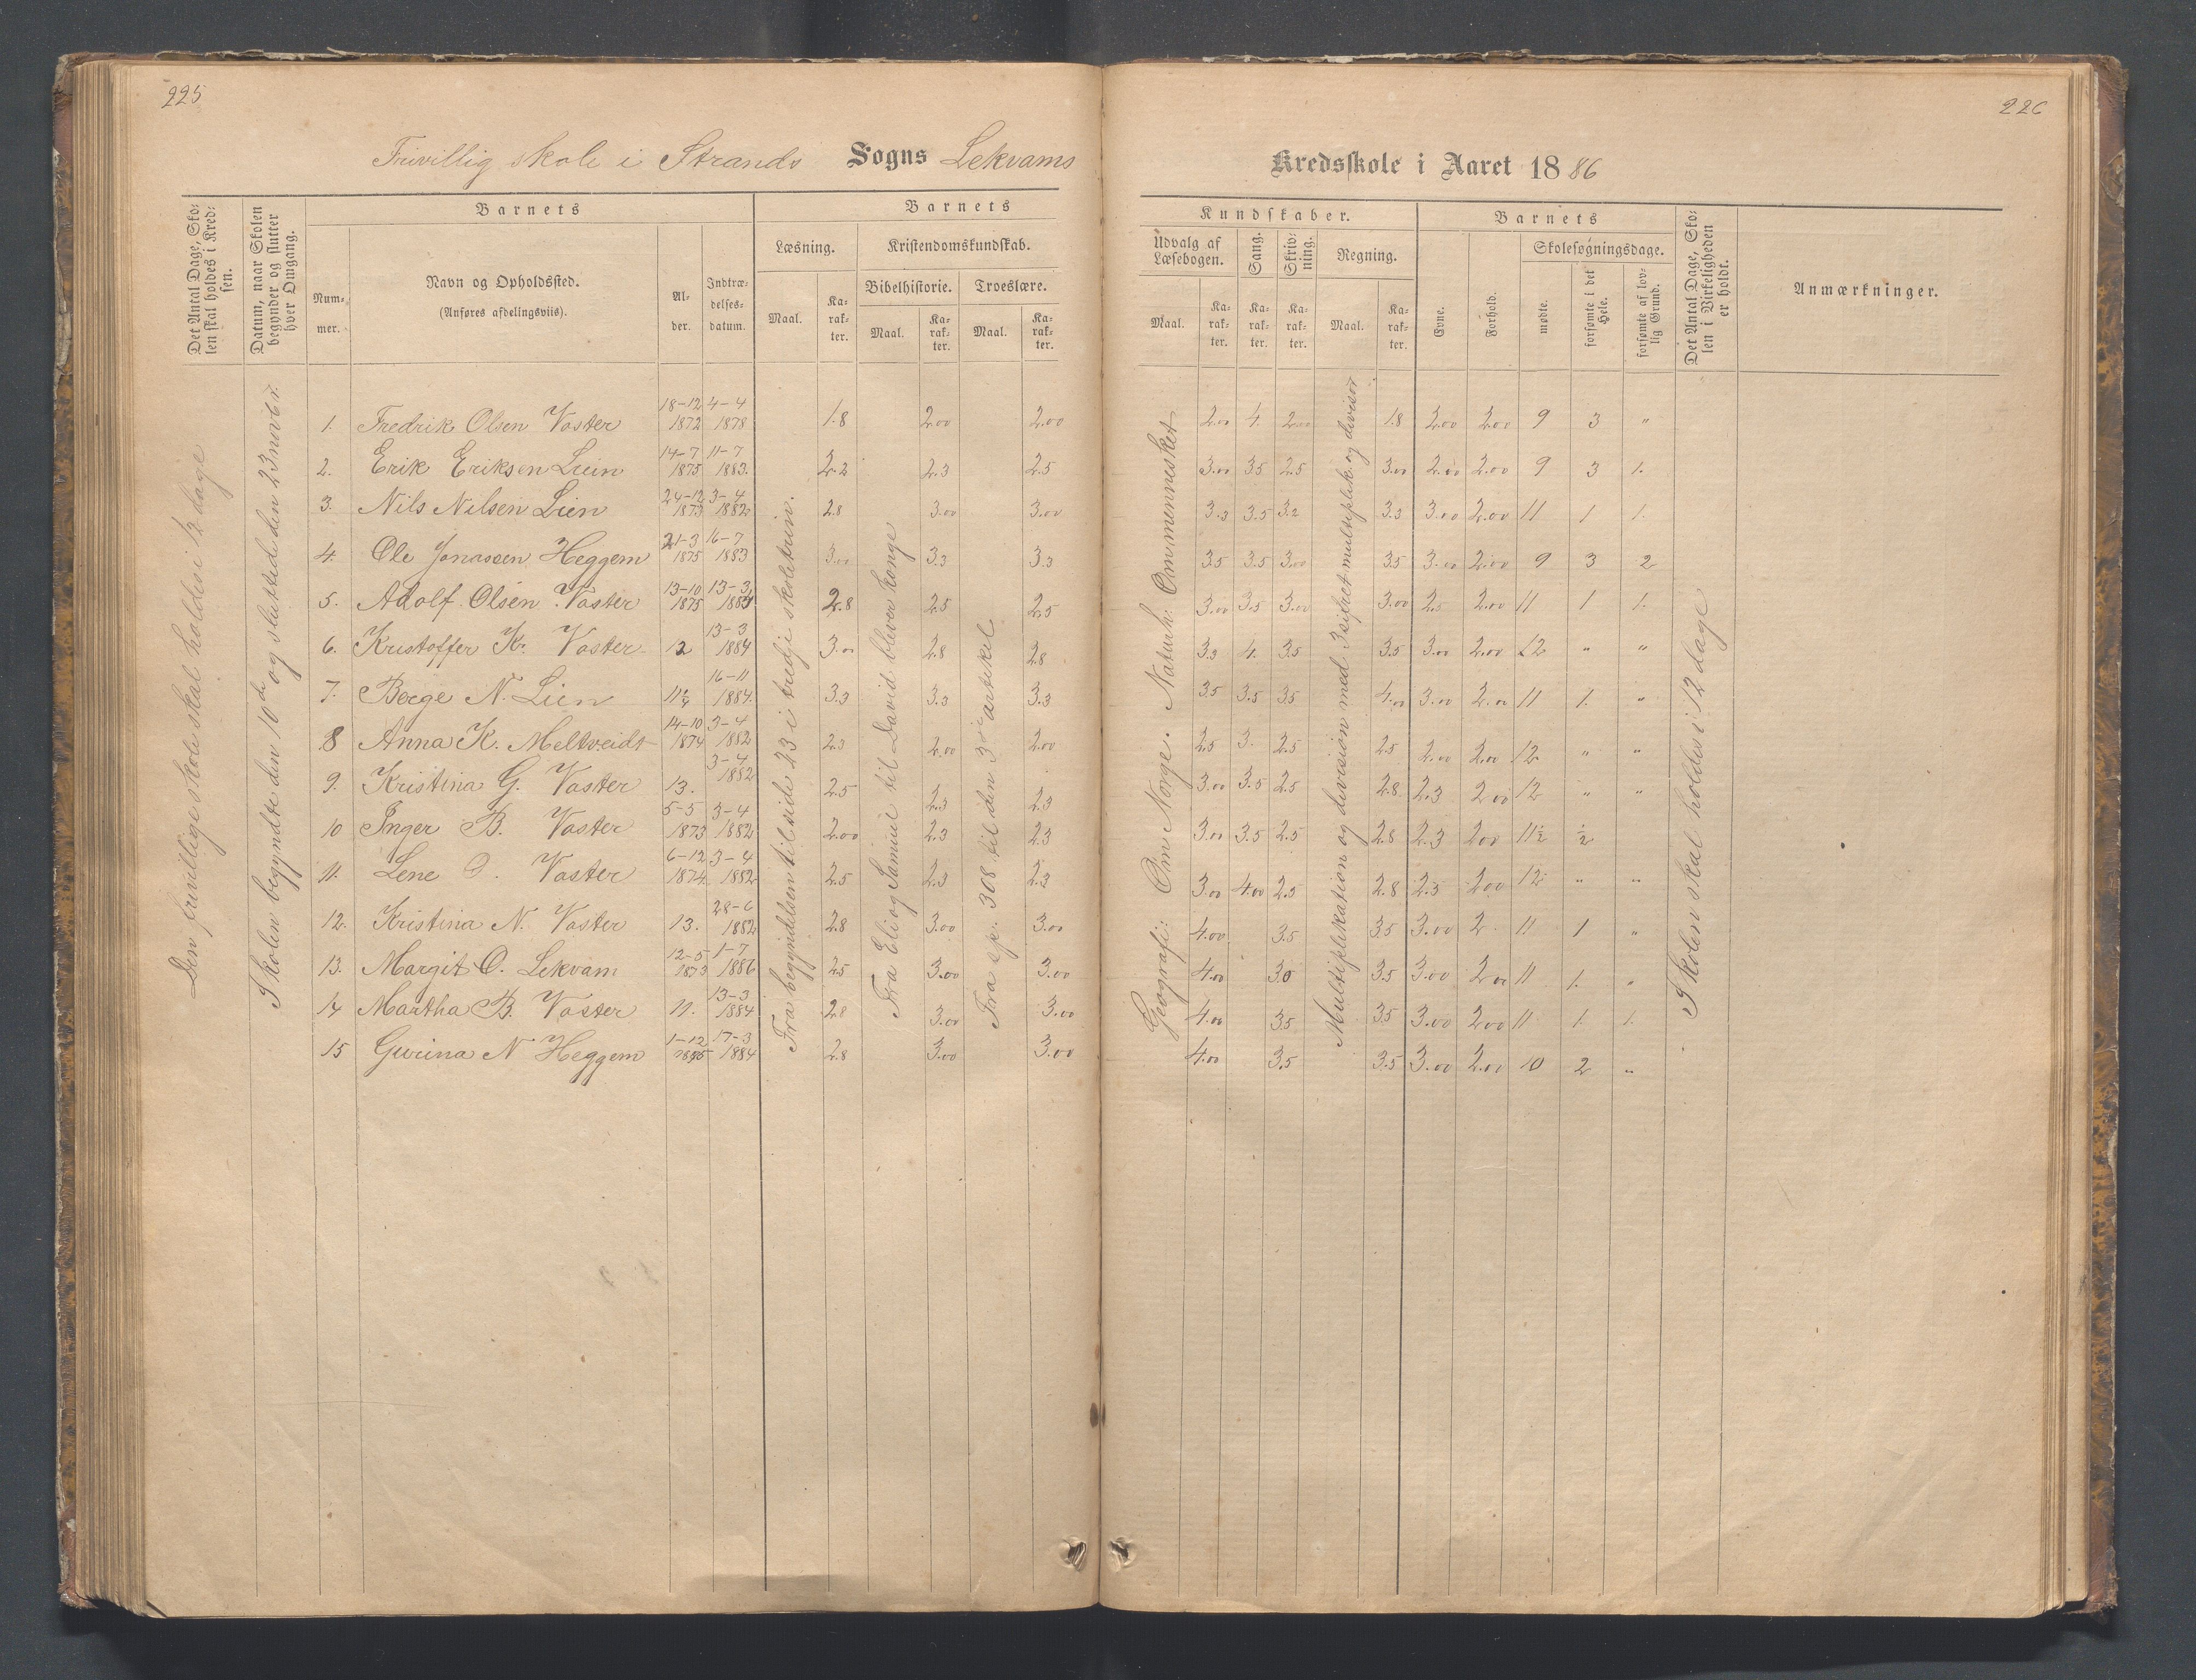 225
226
Frivillig skole i Strands Sogns Lekvams
Kredsskole i Aaret 1886
Det Antal Dage, Skolen skal holdes i Kredsen.
Datum, naar Skolen begynder og slutter hver Omgang.
Barnets
Nummer.
Navn og Opholdssted.
(Anføres afdelingsviis).
Alder.
Indtrædelsesdatum.
Barnets
Læsning.
Kristendomskundskab.
Bibelhistorie.
Troeslære.
Maal.
Karakter.
Maal.
Karakter.
Maal.
Karakter.
Kundskaber.
Udvalg af Læsebogen.
Sang.
Skrivning.
Regning.
Maal.
Karakter.
Karakter.
Karakter.
Maal.
Karakter.
Barnets
Evne.
Forhold.
Skolesøgningsdage.
mødte.
forsømte i det Hele.
forsømte af lovlig Grund.
Det Antal Dage, Skolen i Virkeligheden er holdt.
Anmærkninger.
Den frivillige skole skal holdes i 12 dage
Skolen begyndte den 10de og sluttede den 23 novbr.
Fra begyndelsen til side 23 i tredje skoletrin.
Fra Eli og Samuel til David bliver konge
Fra sp. 308 til den 3die artikel
Geografi: Om Norge. Naturh: Om mennesket
Multiplikation og division med 3 sifret multiplik. og divisor
Skolen skal holdes i 12 dage
1. Fredrik Olsen Vaster 18-12 1872 4-4 1878 1.8 2.00 2.00 2.00 4. 2.00 1.8 2.00 2.00 9 3 "
2. Erik Eriksen Lien 14-7 1875 11-7 1883. 2.2 2.3 2.5 3.00 3.5 2.5 3.00 2.00 2.00 9 3 1.
3. Nils Nilsen Lien 24-12 1873 3-4 1882 2.8 3.00 3.00 3.3 3.5 3.2 3.3 3.00 2.00 11 1 1.
4. Ole Jonassen Heggem 21-3 1875 16-7 1883 3.00 3.3 3.3 3.5 3.5 3.00 3.5 3.00 2.00 9 3 2
5. Adolf Olsen Vaster 13-10 1875 13-3 1884 2.8 2.5 2.5 3.00 3.5 3.00 3.00 2.5 2.00 11 1 1.
6. Kristoffer K. Vaster 12 13-3 1884 3.00 2.8 2.8 3.3 4. 3.5 3.5 3.00 2.00 12 " "
7. Berge N. Lien 11 16-11 1884. 3.3 3.3 3.3 3.5 3.5 3.5 4.00 3.00 2.00 11 1. "
8 Anna K. Meltveidt 14-10 1874 3-4 1882 2.3 2.00 2.00 2.5 3. 2.5 2.5 2.00 2.00 12 " "
9. Kristina G. Vaster 13. 3-4 1882 2.5 2.3 2.3 3.00 3.5 2.5 2.8 2.3 2.00 12 " "
10 Inger B. Vaster 5-5 1873 3-4 1882 2.00 2.3 2.3 3.00 3.5 2.5 2.8 2.3 2.00 11½ ½
11. Lene O. Vaster 6-12 1874 3-4 1882 2.5 2.3 2.3 3.00 4.00 2.5 2.8 2.5 2.00 12 " "
12. Kristina N. Vaster 13. 28-6 1882 2.8 3.00 3.00 4.00 3.5 3.5 3.00 2. 11 1 "
13. Margit O. Lekvam 12-5 1873 1-7 1886 2.5 3.00 3.00 4.00 3.0 3.5 3.00 2.00 11 1. "
14 Martha B. Vaster 11. 13-3 1884 2.8 3.00 3.00 4.00 3.5 3.5 3.00 2.00 11 1. 1.
15 Gurina N Heggem 1-12 17-3 1884 2.8 3.00 3.00 4.00 3.5 3.5 3.00 2.00 10 2 "